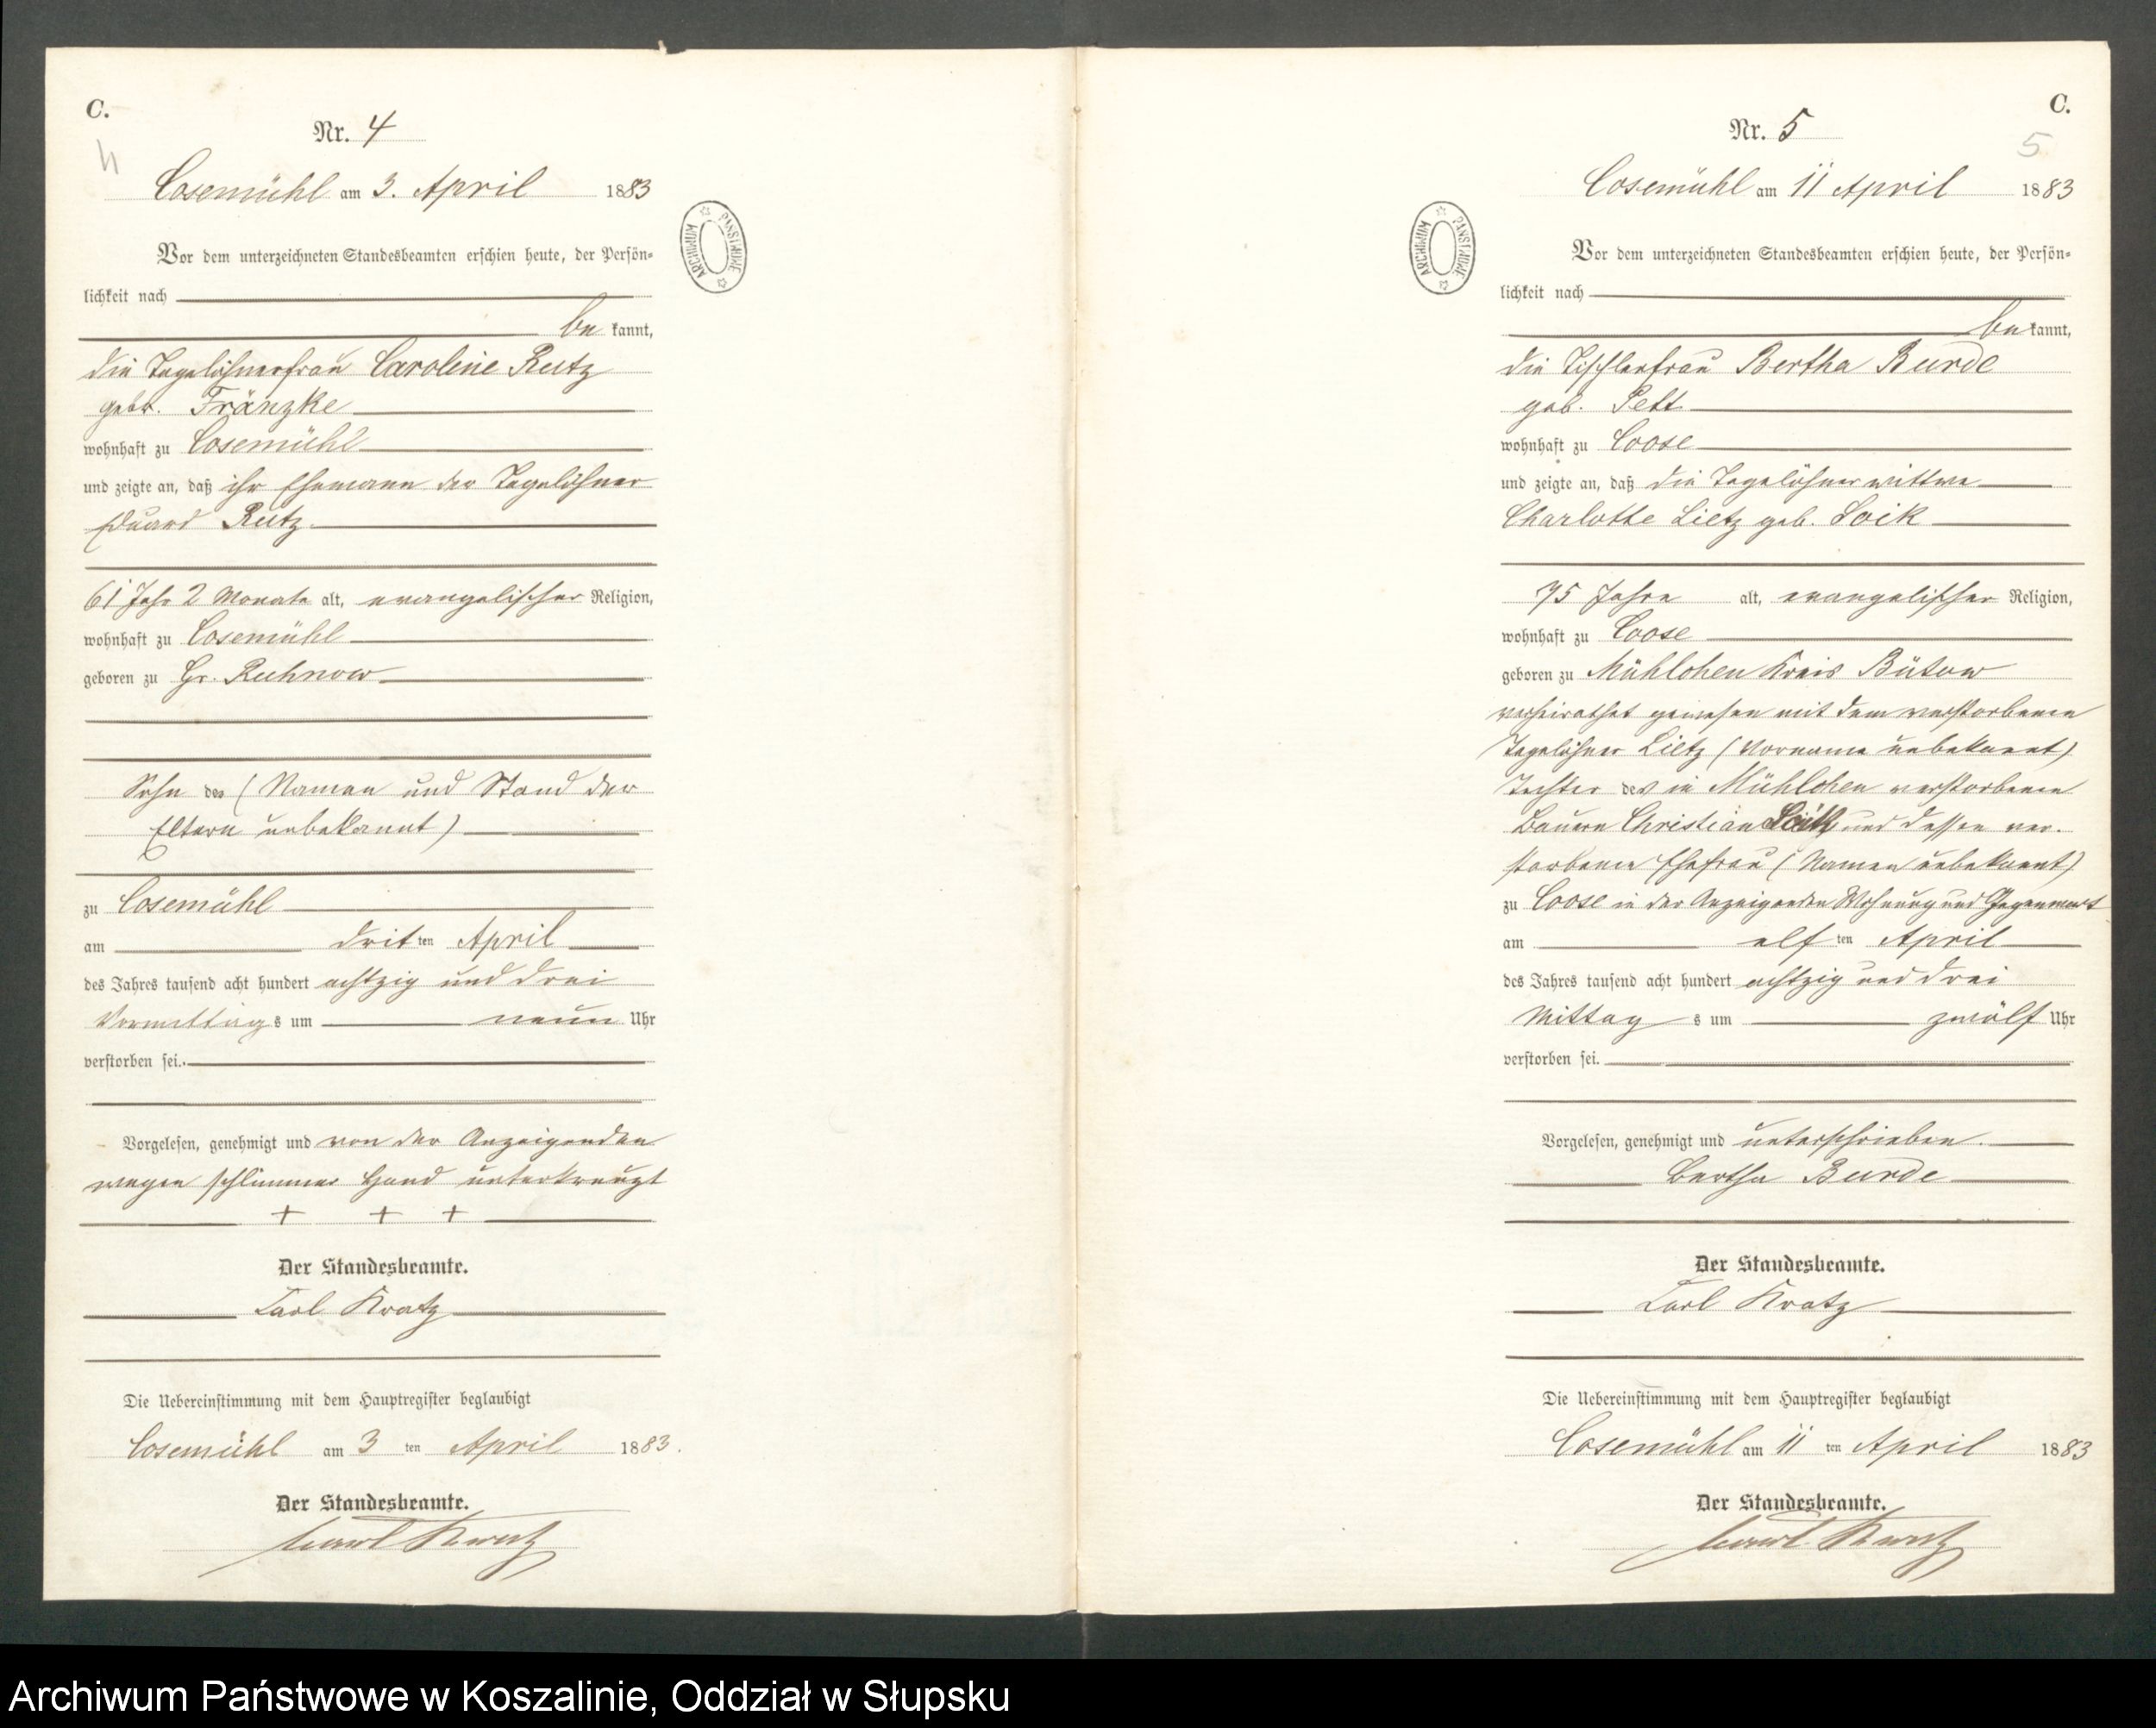 C.
4
Nr. 4
Cosemühl am 3. April 1883
Vor dem unterzeichneten Standesbeamten erschien heute, der Persön=
lichkeit nach
be kannt,
die Tagelöhnerfrau Caroline Rutz
gebr. Fränzke
wohnhaft zu Cosemühl
und zeigte an, daß ihr Ehemann der Tagelöhner
Eduard Rutz
61 Jahr 2 Monate alt, evangelischer Religion,
wohnhaft zu Cosemühl
geboren zu Gr. Ruhnow
Sohn des (Namen und Stand der
Eltern unbekannt)
zu Cosemühl
am drit ten April
des Jahres tausend acht hundert achtzig und drei
Vormittag s um neun Uhr
verstorben sei.
Vorgelesen, genehmigt und von der Anzeigenden
wegen schlimmer Hand unterkreuzt
+ + +
Der Standesbeamte.
Carl Kratz
Die Uebereinstimmung mit dem Hauptregister beglaubigt
Cosemühl am 3 ten April 1883.
Der Standesbeamte.
Carl Kratz
ARCHIWUM PAŃSTWOWE
C.
5
Nr. 5
Cosemühl am 11 April 1883
Vor dem unterzeichneten Standesbeamten erschien heute, der Persön=
lichkeit nach
be kannt,
die Tischlerfrau Bertha Burde
geb. Pett
wohnhaft zu Coose
und zeigte an, daß die Tagelöhnerwittwe
Charlotte Lietz geb. Loik
75 Jahre alt, evangelischer Religion,
wohnhaft zu Coose
geboren zu Mühlchen Kreis Bütow
verheirathet gewesen mit dem verstorbenen
Tagelöhner Lietz (Vorname unbekannt)
Tochter des in Mühlchen verstorbenen
Bauern Christian Loik und dessen ver.
storbenen Ehefrau (Namen unbekannt)
zu Coose in der Anzeigenden Wohnung und Gegenwart
am elf ten April
des Jahres tausend acht hundert achtzig und drei
Mittag s um zwölf Uhr
verstorben sei.
Vorgelesen, genehmigt und unterschrieben.
Bertha Burde
Der Standesbeamte.
Carl Kratz
Die Uebereinstimmung mit dem Hauptregister beglaubigt
Cosemühl am 11 ten April 1883
Der Standesbeamte.
Carl Kratz
ARCHIWUM PAŃSTWOWE
Archiwum Państwowe w Koszalinie, Oddział w Słupsku